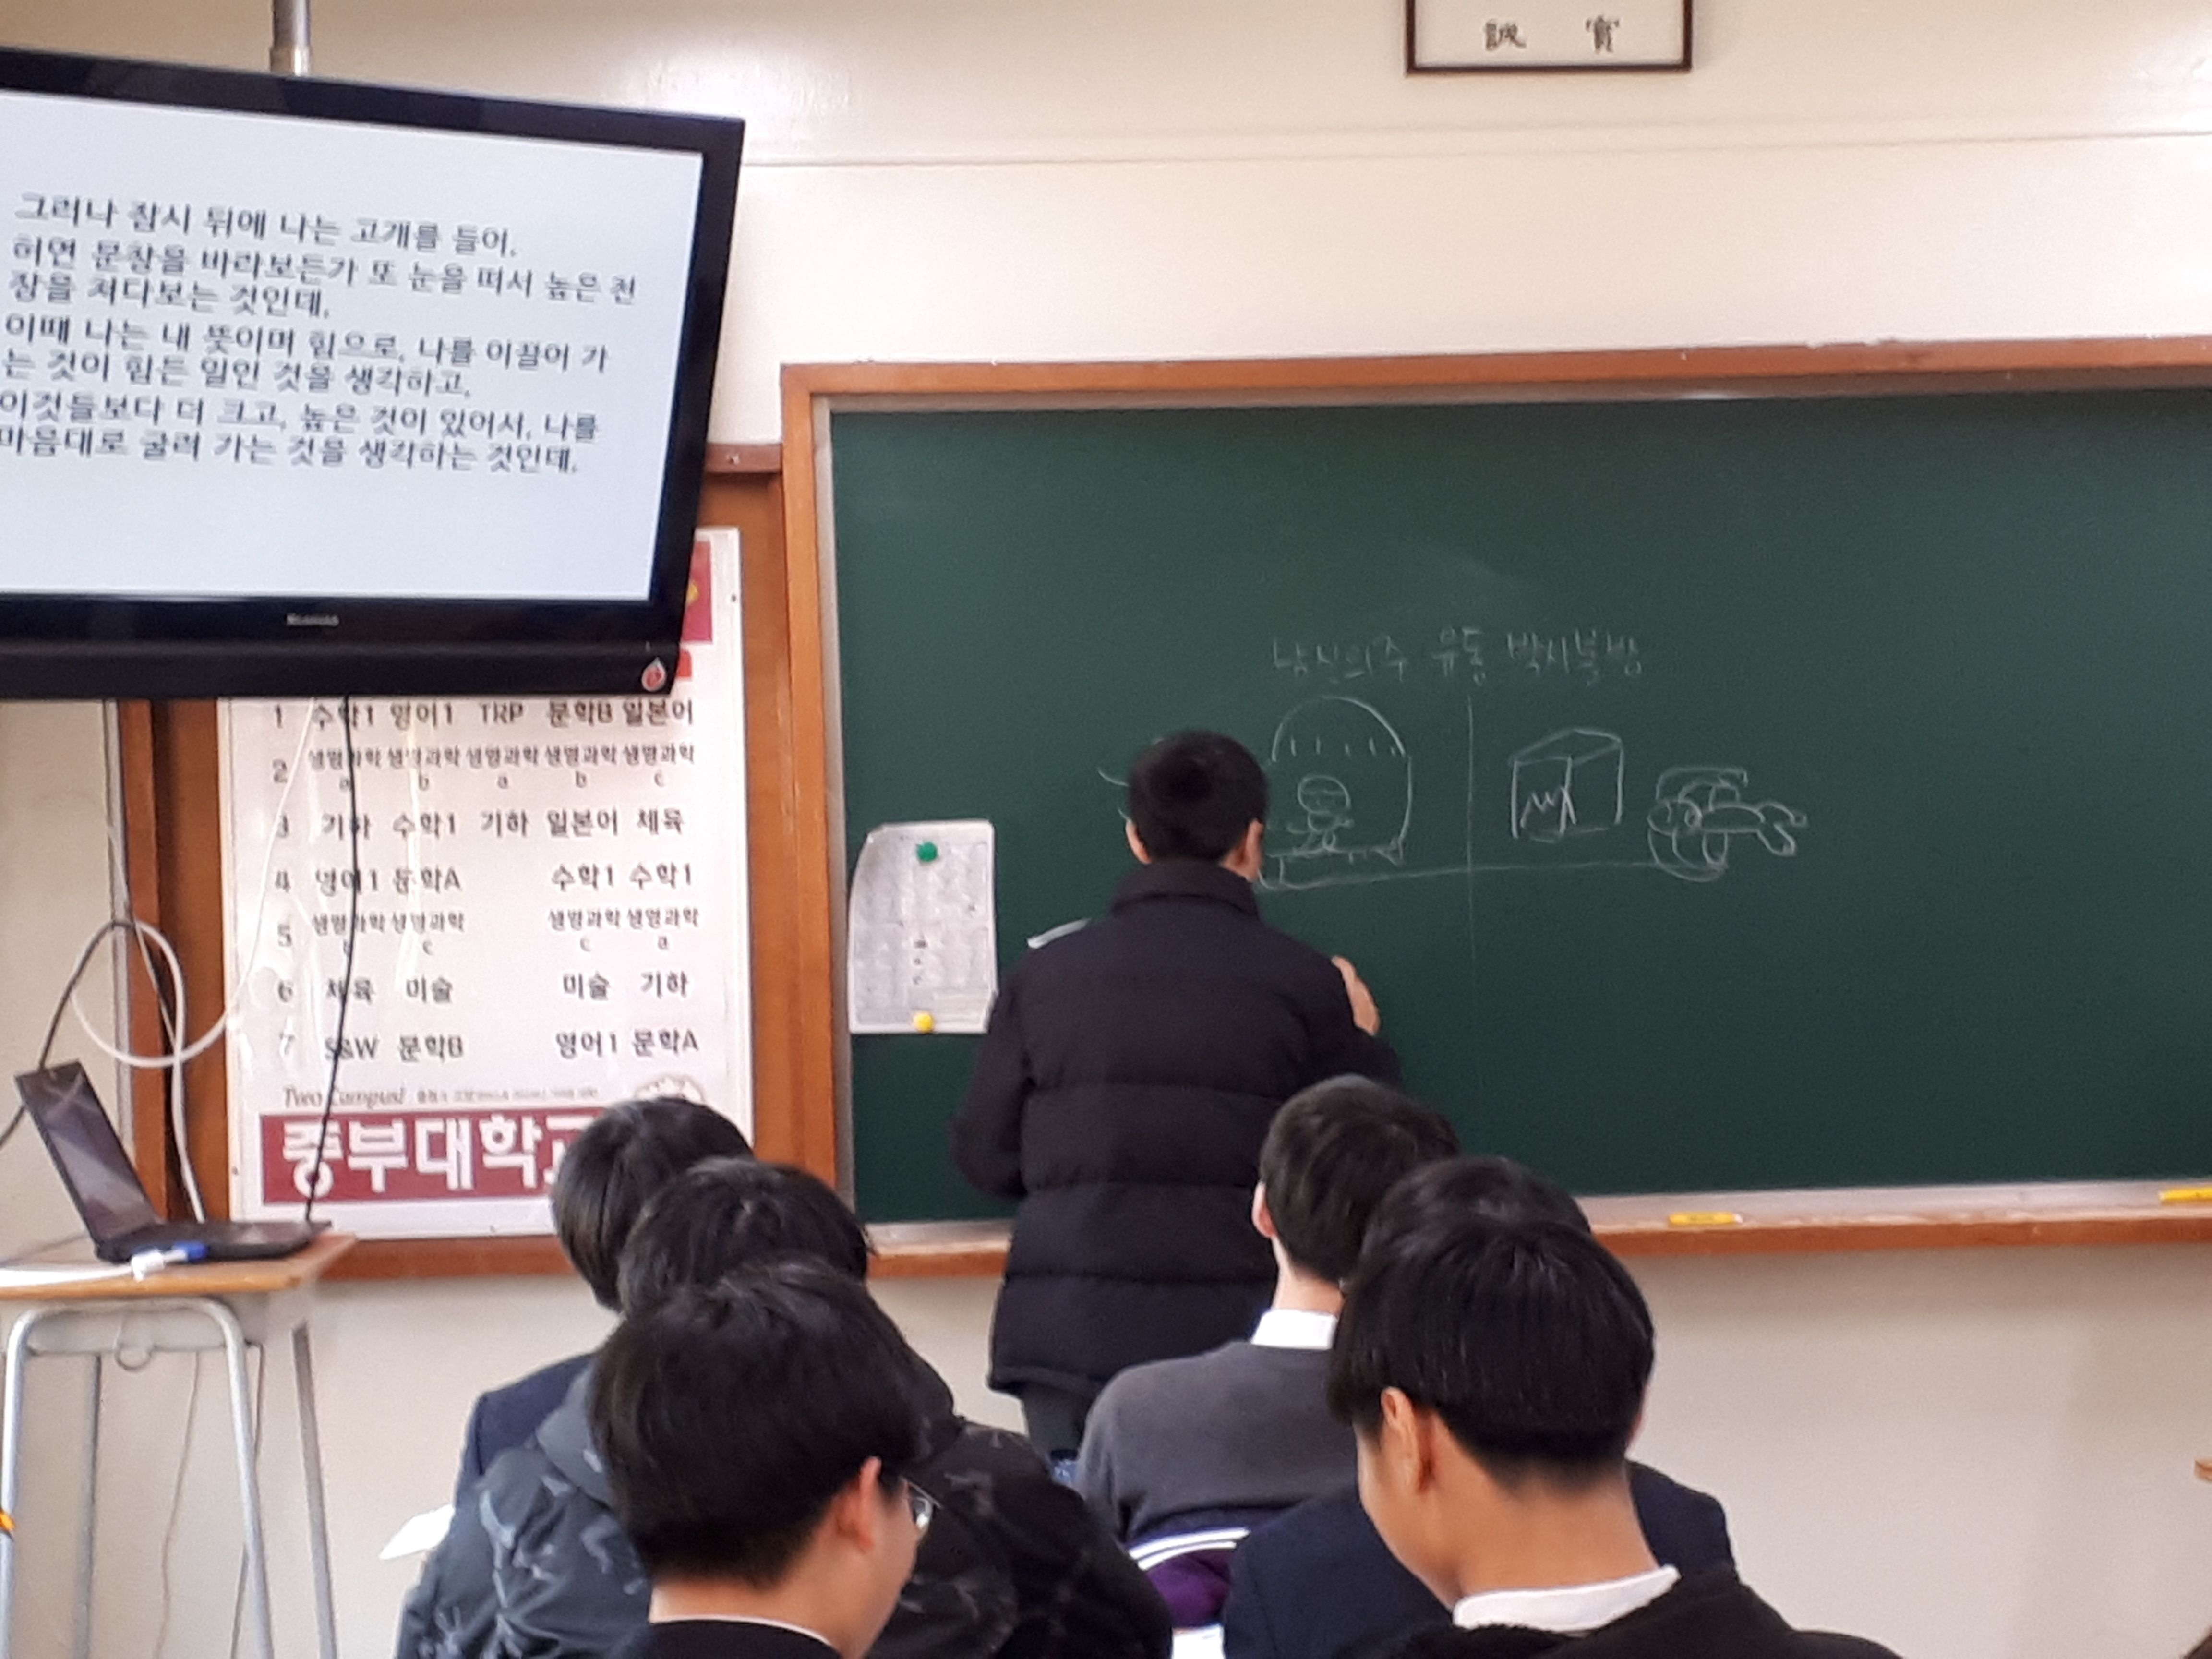 誠 實
그러나 잠시 뒤에 나는 고개를 들어,
허연 문창을 바라보든가 또 눈을 떠서 높은 천
장을 쳐다보는 것인데,
이때 나는 내 뜻이며 힘으로, 나를 이끌어 가
는 것이 힘든 일인 것을 생각하고,
이것들보다 더 크고, 높은 것이 있어서, 나를
마음대로 굴려 가는 것을 생각하는 것인데,
남신의주 유동 박시봉방
1 수학1 영어1 TRP 문학B 일본어
2 생명과학 생명과학 생명과학 생명과학 생명과학
a b a b c
3 기하 수학1 기하 일본어 체육
4 영어1 문학A 수학1 수학1
5 생명과학 생명과학 생명과학 생명과학
b c c a
6 체육 미술 미술 기하
7 S&W 문학B 영어1 문학A
Two Campus!
중부대학교